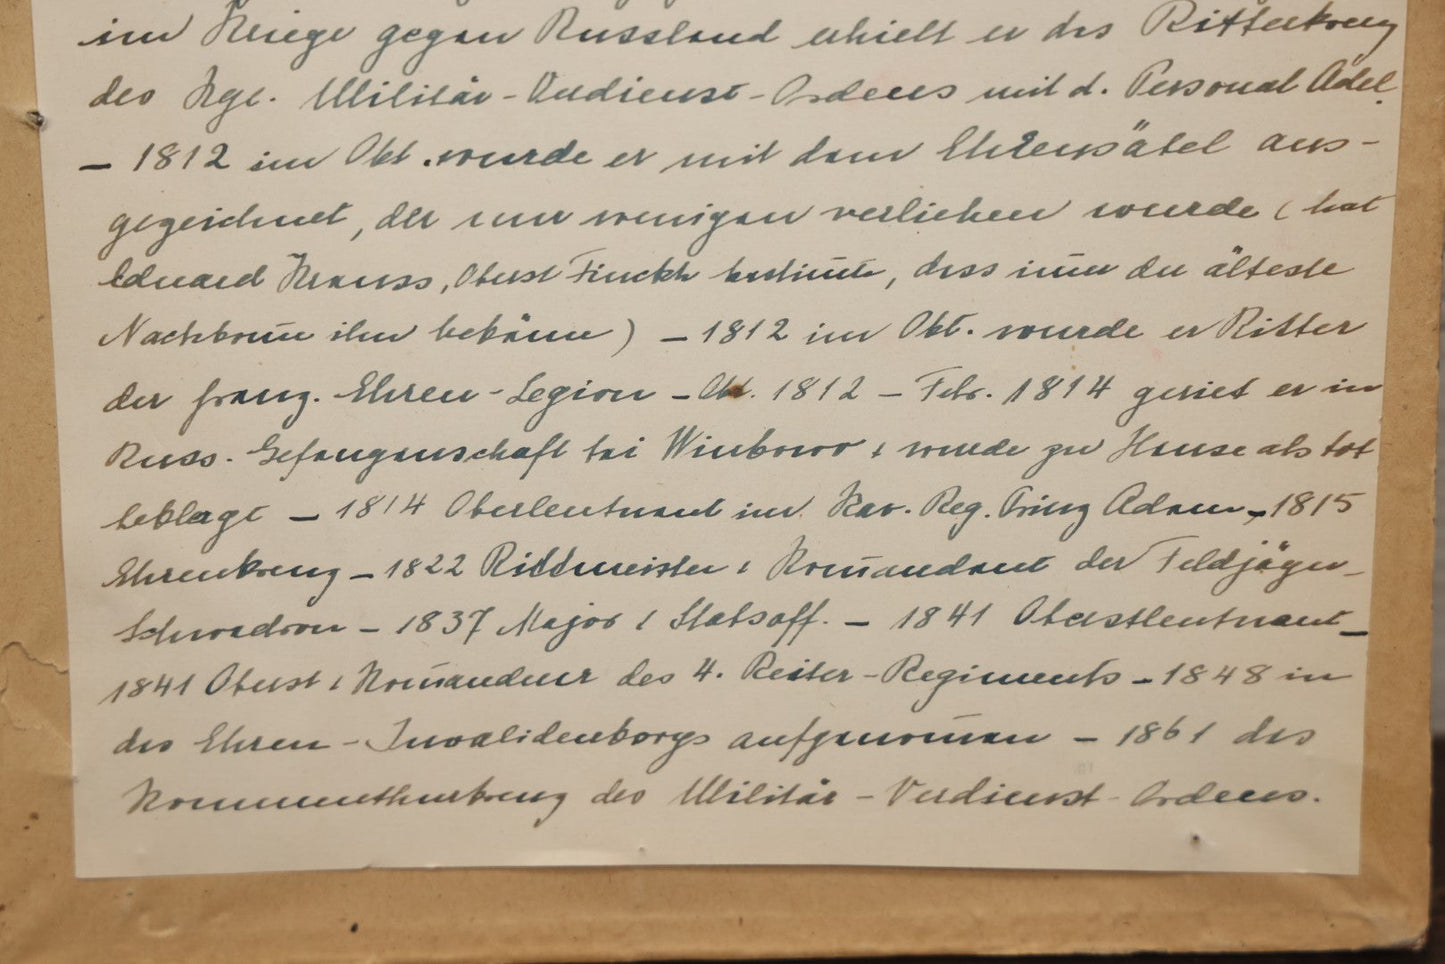 im Kriege gegen Russland erhielt er das Ritterkreuz
des Kgl. Militär-Verdienst-Ordens mit d. Personal Adel.
– 1812 im Okt. wurde er mit dem Ehrensäbel aus-
gezeichnet, der nur wenigen verliehen wurde (hat
Eduard Krauss, Oberst Finckh bestimmt, dass immer der älteste
Nachkomme ihn bekäme) – 1812 im Okt. wurde er Ritter
der franz. Ehren-Legion – Okt. 1812 – Febr. 1814 geriet er in
Russ. Gefangenschaft bei Winkowo & wurde zu Hause als tot
beklagt – 1814 Oberleutnant im Kav. Reg. Prinz Adam – 1815
Ehrenkreuz – 1822 Rittmeister & Kom̄andant der Feldjäger-
Schwadron – 1837 Major & Stabsoff. – 1841 Oberstleutnant –
1841 Oberst & Kom̄andeur des 4. Reiter-Regiments – 1848 in
das Ehren-Invalidenkorps aufgenom̄en – 1861 das
Kommenthurkreuz des Militär-Verdienst-Ordens.